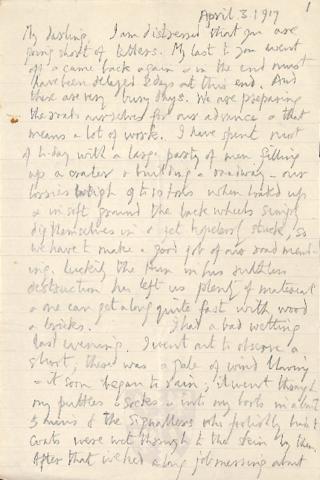 April 3. 1917 1
My darling, I am distressed that you are
going short of letters. My last to you went
off & came back again & in the end must
have been delayed 2 days at this end. And
these are very busy days. We are preparing
the roads ourselves for our advance & that
means a lot of work. I have spent most
of to-day with a large party of men filling
up a crater & building a roadway – our
lorries weigh 9 to 10 tons when loaded up
& in soft ground the back wheels simply
dig themselves in & get hopelessly stuck, so
we have to make a good job of our road mend-
ing. Luckily the Hun in his ruthless
destruction has left us plenty of material
& one can get along quite fast with wood
& bricks. I had a bad wetting
last evening. I went out to observe a
shoot; there was a gale of wind blowing
& it soon began to rain; it went through
my putties & socks & into my boots in about
5 mins & the signallers who foolishly hadn't
coats were wet through to the skin by then.
After that we had a long job messing about